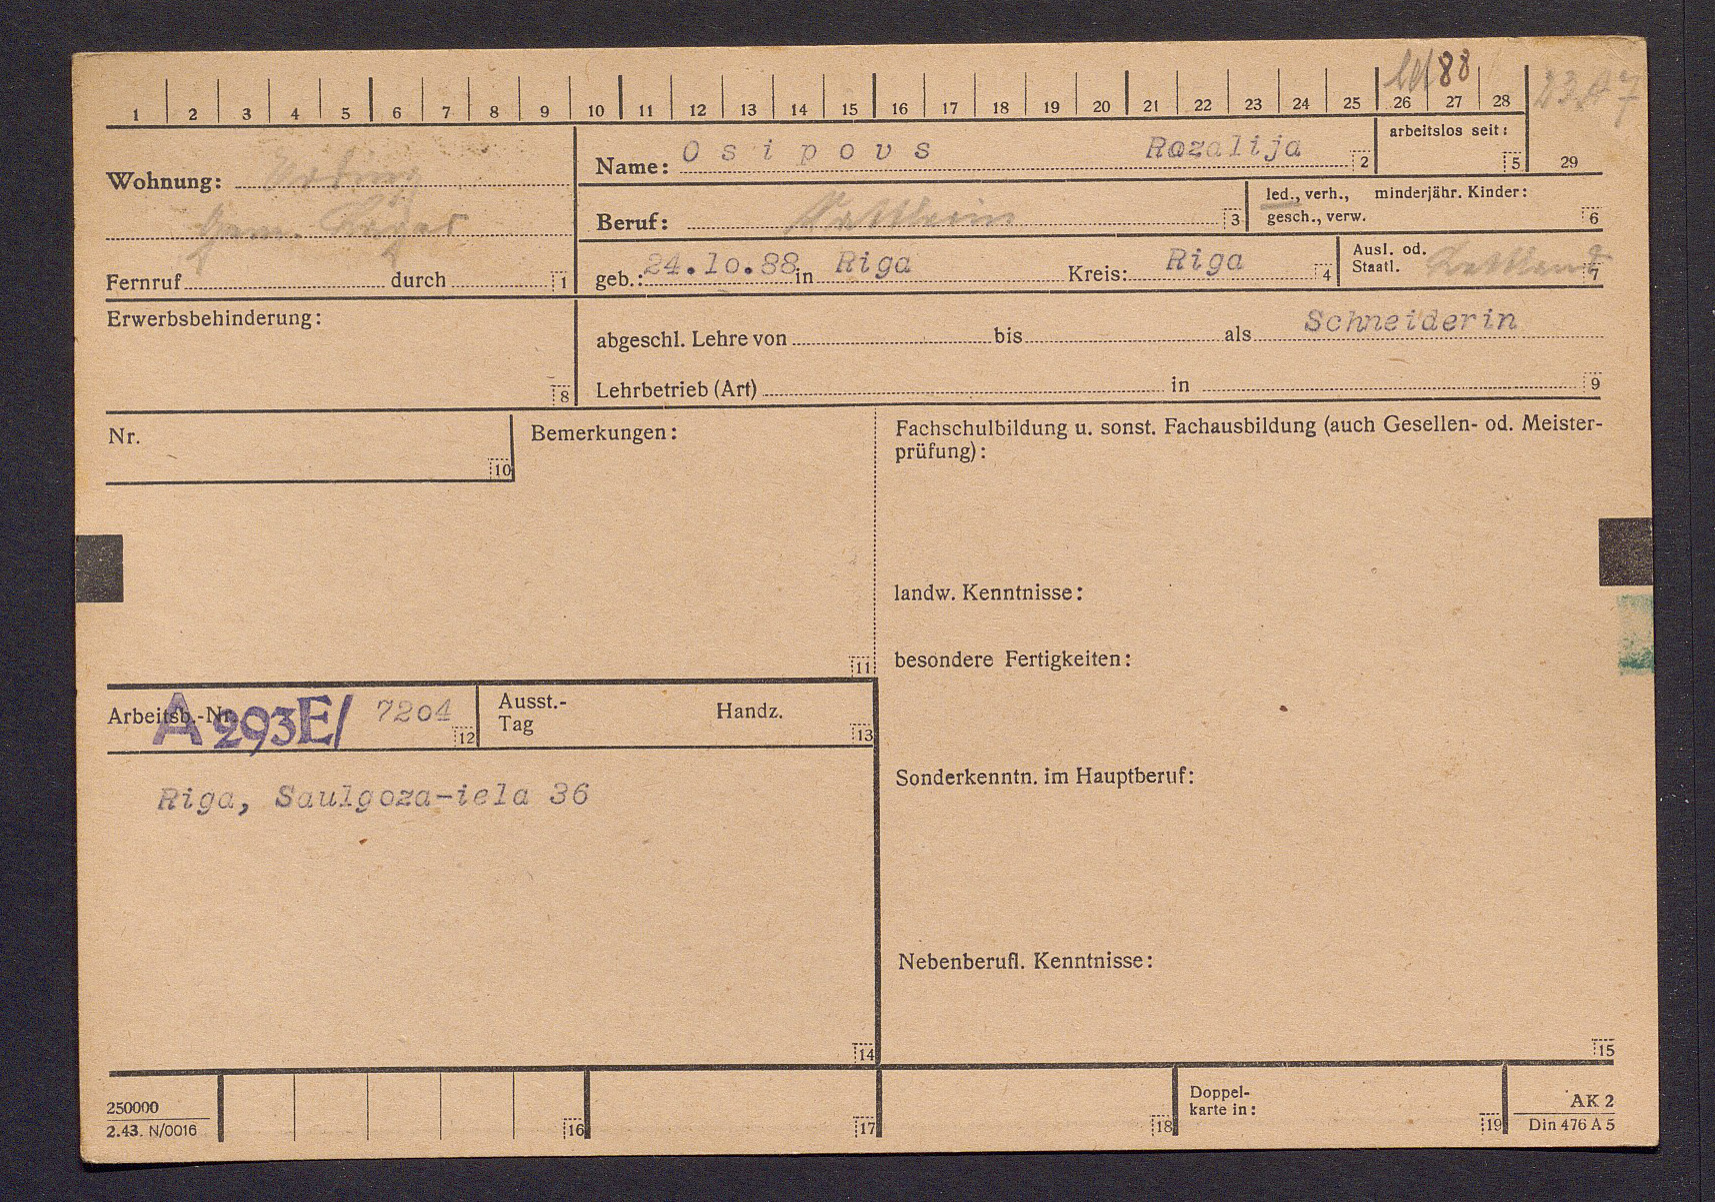 88
1 2 3 4 5 6 7 8 9 10 11 12 13 14 15 16 17 18 19 20 21 22 23 24 25 26 27 28
Wohnung:
Name: Osipovs Rozalija 2
arbeitslos seit: 5
29
Beruf: 3
led., verh., minderjähr. Kinder:
gesch., verw. 6
Fernruf durch 1
geb.: 24.10.88 in Riga Kreis: Riga 4
Ausl. od.
Staatl. 7
Erwerbsbehinderung: 8
abgeschl. Lehre von bis als Schneiderin
Lehrbetrieb (Art) in 9
Nr. 10
Bemerkungen: 11
Fachschulbildung u. sonst. Fachausbildung (auch Gesellen- od. Meister-
prüfung):
landw. Kenntnisse:
besondere Fertigkeiten:
Arbeitsb.-Nr. A 293E/ 7204 12
Ausst.-
Tag Handz. 13
Riga, Saulgoza-iela 36
14
Sonderkenntn. im Hauptberuf:
Nebenberufl. Kenntnisse:
15
250000
2.43. N/0016
16 17 18
Doppel-
karte in: 19
AK 2
Din 476 A 5